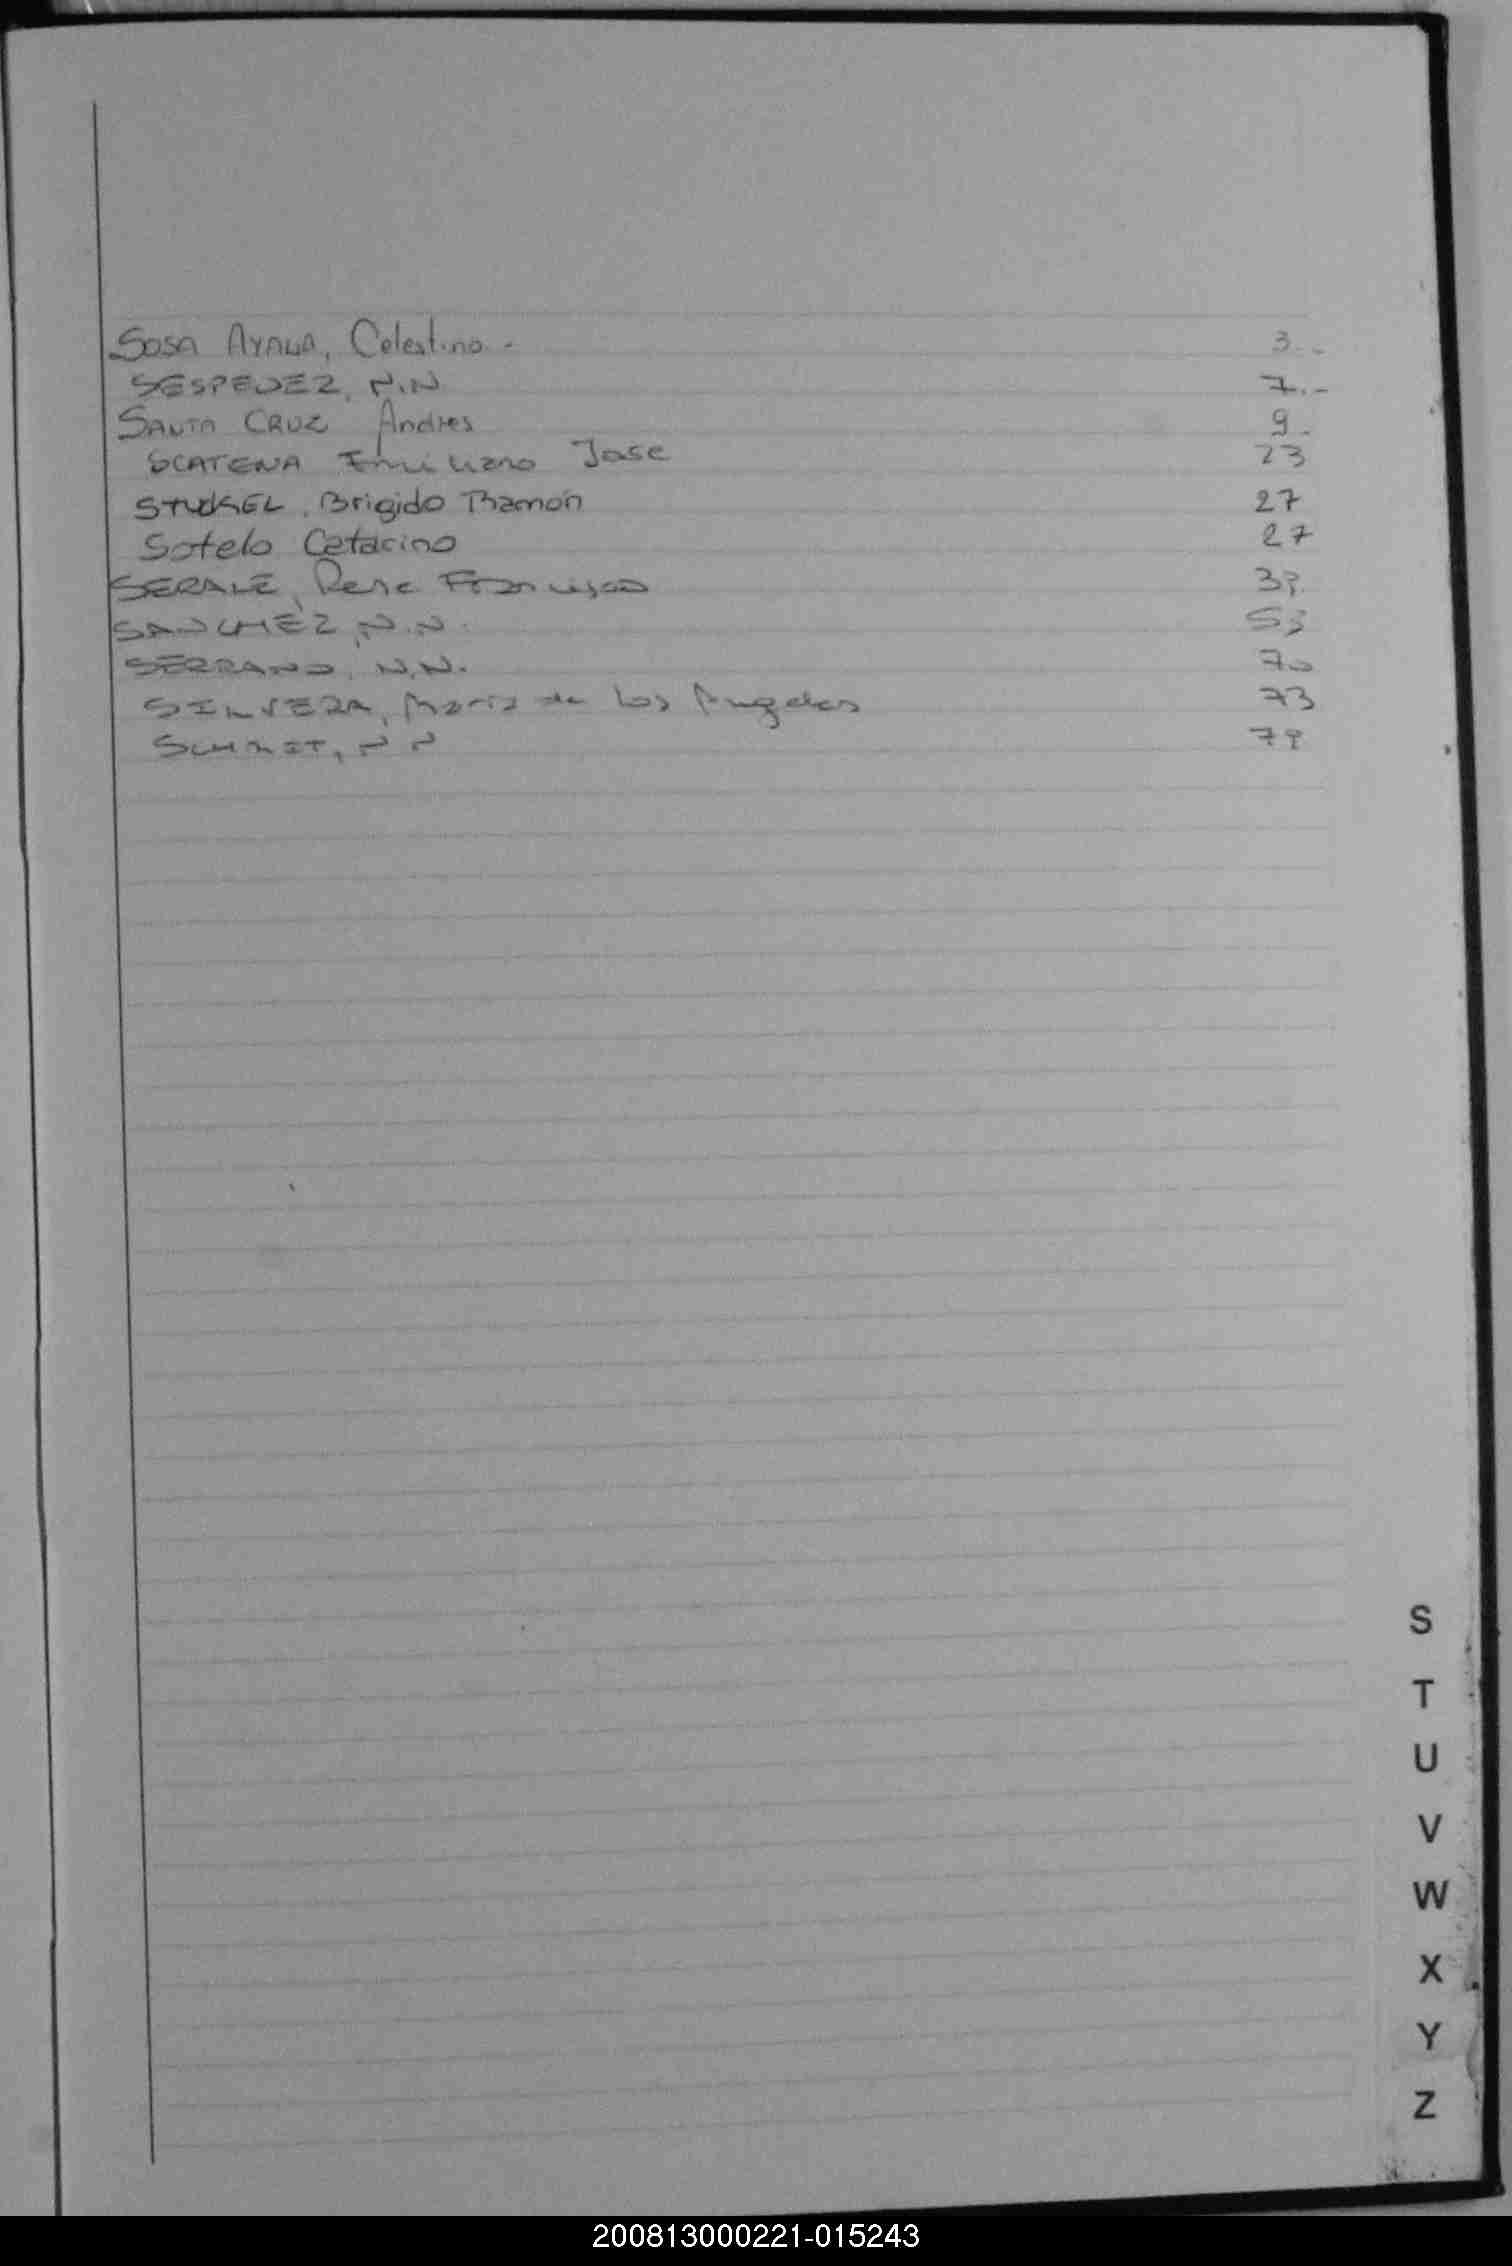 SOSA AYALA, Celestino.- 3.-
SESPEDEZ, N.N 7.-
SANTA CRUZ Andres 9-
SCATENA Emiliano Jose 23
Brigido Ramón 27
Sotelo Cetacino 27
SERALE, Rene Francisco
SANCHEZ, N.N. 53
SERRANO, N.N. 70
SILVERA, Maria de los Angeles 73
SCHMIT, N N
S
T
U
V
W
X
Y
Z
200813000221-015243